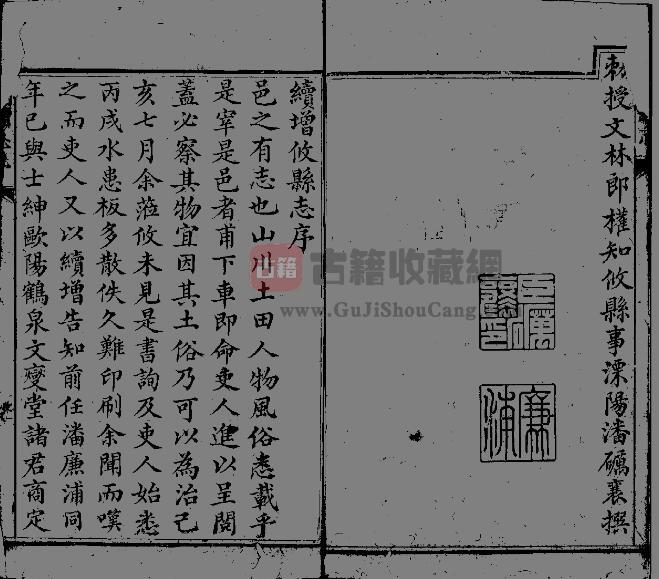 敕授文林郎權知攸縣事溧陽潘礪襄撰
廉浦
續增攸縣志序
邑之有志也山川土田人物風俗悉載乎
是宰是邑者甫下車即命吏人進以呈閱
蓋必察其物宜因其土俗乃可以為治己
亥七月余蒞攸未見是書詢及吏人始悉
丙戌水患板多散佚久難印刷余聞而嘆
之而吏人又以續增告知前任潘廉浦同
年已與士紳歐陽鶴泉文燮堂諸君商定
古籍
古籍收藏網
www.GuJiShouCang